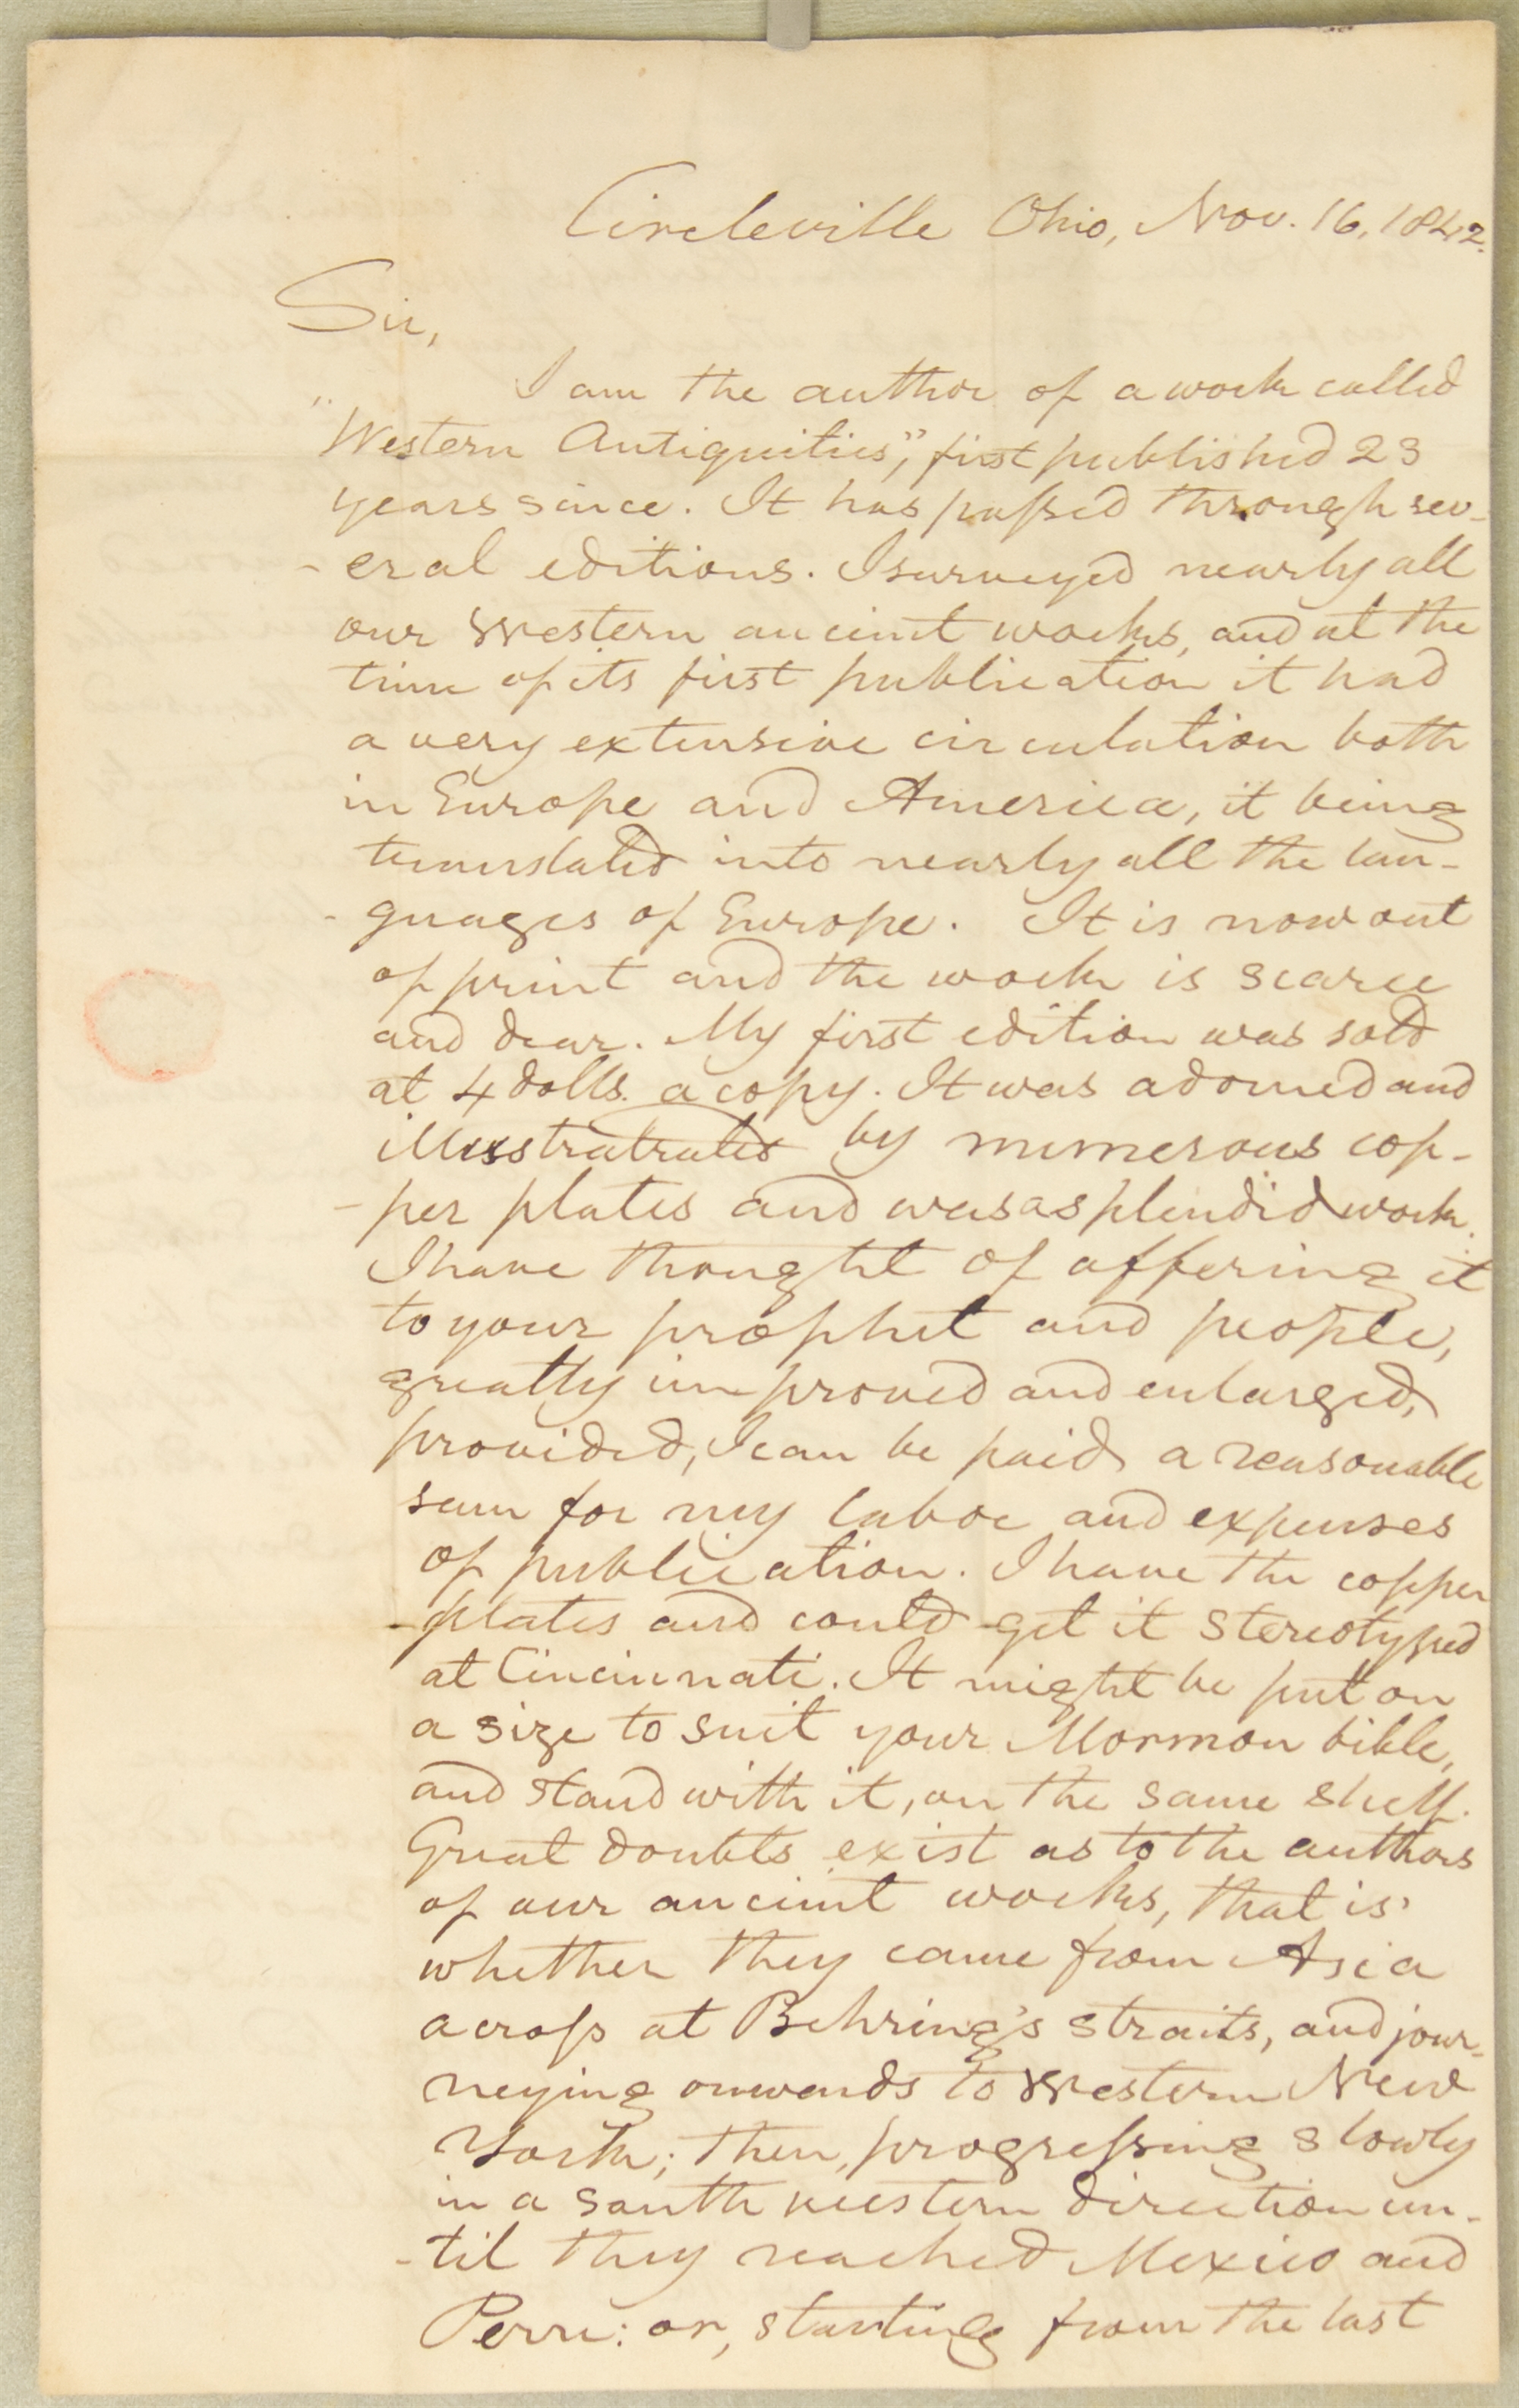 Circleville Ohio, Nov. 16, 1842.
Sir,
I am the author of a work called
"Western Antiquities", first published 23
years since. It has passed through sev-
-eral editions. I surveyed nearly all
our Western ancient works, and at the
time of its first publication it had
a very extensive circulation both
in Europe and America, it being
translated into nearly all the lan-
-guages of Europe. It is now out
of print and the work is scarce
and dear. My first edition was sold
at 4 dolls. a copy. It was adorned and
illusstratrated by numerous cop-
-per plates and was a splendid work.
I have thought of offering it
to your prophet and people,
greatly improved and enlarged,
provided, I can be paid a reasonable
sum for my labor and expenses
of publication. I have the copper
-plates and could get it stereotyped
at Cincinnati. It might be put on
a size to suit your Mormon bible,
and stand with it, on the same shelf.
Great doubts exist as to the authors
of our ancient works, that is
whether they came from Asia
across at Behring's straits, and jour-
neying onwards to Western New
York; then, progressing slowly
in a south western direction un-
-til they reached Mexico and
Perru: or, starting from the last